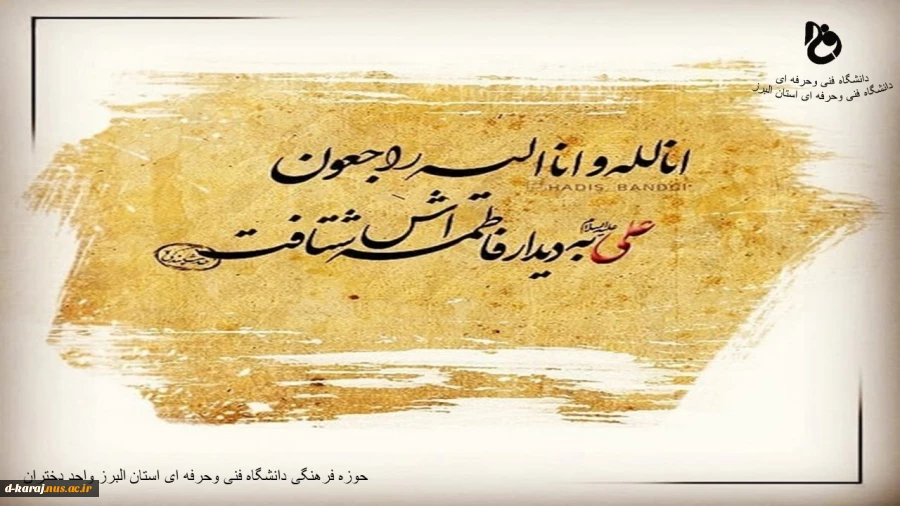 دانشگاه فنی وحرفه ای
دانشگاه فنی وحرفه ای استان البرز
انا لله و انا الیه راجعون
HADIS_BANDGI
علی علیه السلام به دیدار فاطمه اَش شتافت
حوزه فرهنگی دانشگاه فنی وحرفه ای استان البرز واحد دختران
d-karaj.nus.ac.ir